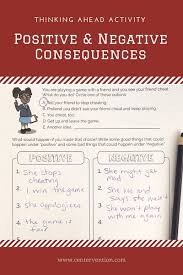 THINKING AHEAD ACTIVITY
POSITIVE & NEGATIVE
CONSEQUENCES
You are playing a game with a friend and you see your friend cheat.
What do you do? Circle one of these options:
A. Tell your friend to stop cheating.
B. Pretend you didn't see your friend cheat and keep playing.
C. You cheat, too.
D. Get up and leave the game.
E. Another idea:
What would happen if you made that choice? Write some good things that could
happen under "positive" and some bad things that could happen under "negative"
POSITIVE
NEGATIVE
1. She stops
cheating
2. I win the game
3. She apologizes
4. the game is
fair
1. She might get
mad
2. She
and says she won't
3. She won't play
with me again
www.centervention.com